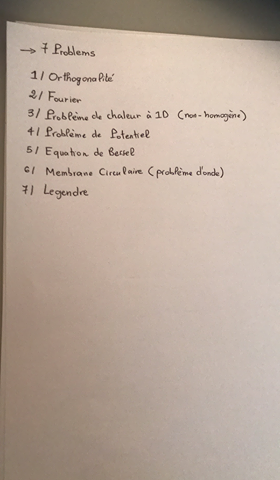 → 7 Problems
1/ Orthogonalité
2/ Fourier
3/ Problème de chaleur à 1D (non-homogène)
4/ Problème de Potentiel
5/ Equation de Bessel
6/ Membrane Circulaire (problème d'onde)
7/ Legendre